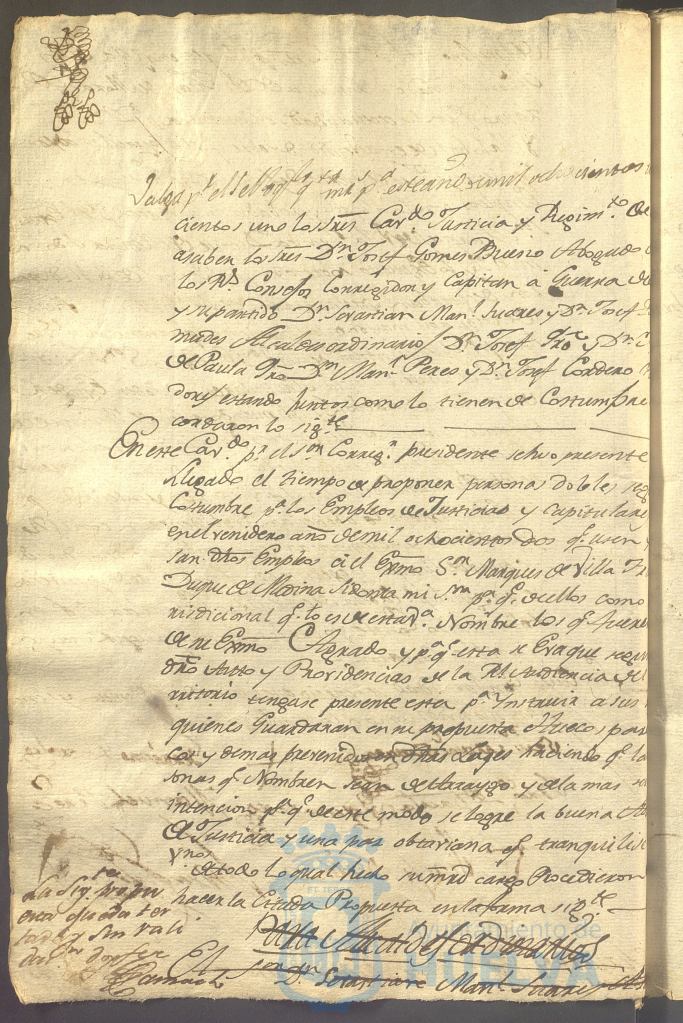 Valga p.a el Sello q.to mrs p.a este año de mil ochocientos
cientos uno los Sres Cav.do Justicia y Regim.to de
asaben los Sres D.n Josef Gomes Bueno Abogado
los R.s Consejos Corregidor y Capitan a Guerra de
y su partido D.n Sevastian Man.l Suares y D.n Josef
mudes Alcaldes ordinarios D.n Josef y D.n
de Paula D.n Man.l Peres y D.n Josef Cordero
dores estando juntos como lo tienen de Costumbre
cordaron lo sig.te
En este Cav.do p.r el S.or Correg.r presidente se hiso presente
llegado el tiempo de proponer personas dobles seg
Costumbre p.a los Empleos de Justicias y Capitulares
en el venidero año de mil ochocientos dos q.e usen y
san dhos Empleos el Exmo S.or Marques de Villa
Duque de Medina Sidonia mi S.or p.a q.e de ellos como
risdicional q.e lo es de esta v.a Nombre los q.e fueren
de su Exmo Agrado y p.a q.e esta se Evaque segun
dho Auto y Providencias de la R.l Audiencia del
rritorio tengase presente esta p.a Instruir a sus
quienes Guardaran en su propuesta Huecos paren
cos y demas prevenido en dhas Leyes haciendo q.e las
sonas q.e Nombren sean de Arraygo y de la mas
intencion p.a q.e de este modo se logre la buena
de Justicia y una paz obtaviana q.e tranquilise
Vnos
A todo lo qual hecho sumrd cargo Procedieron
hacer la Citada Propuesta en la forma sig.te
Para Alcaldes ordinarios
D.n Sebastian Man.l Suares
La Sig.te propu
esta queda tes
tada y sin vali
Ayuntamiento de
HUELVA